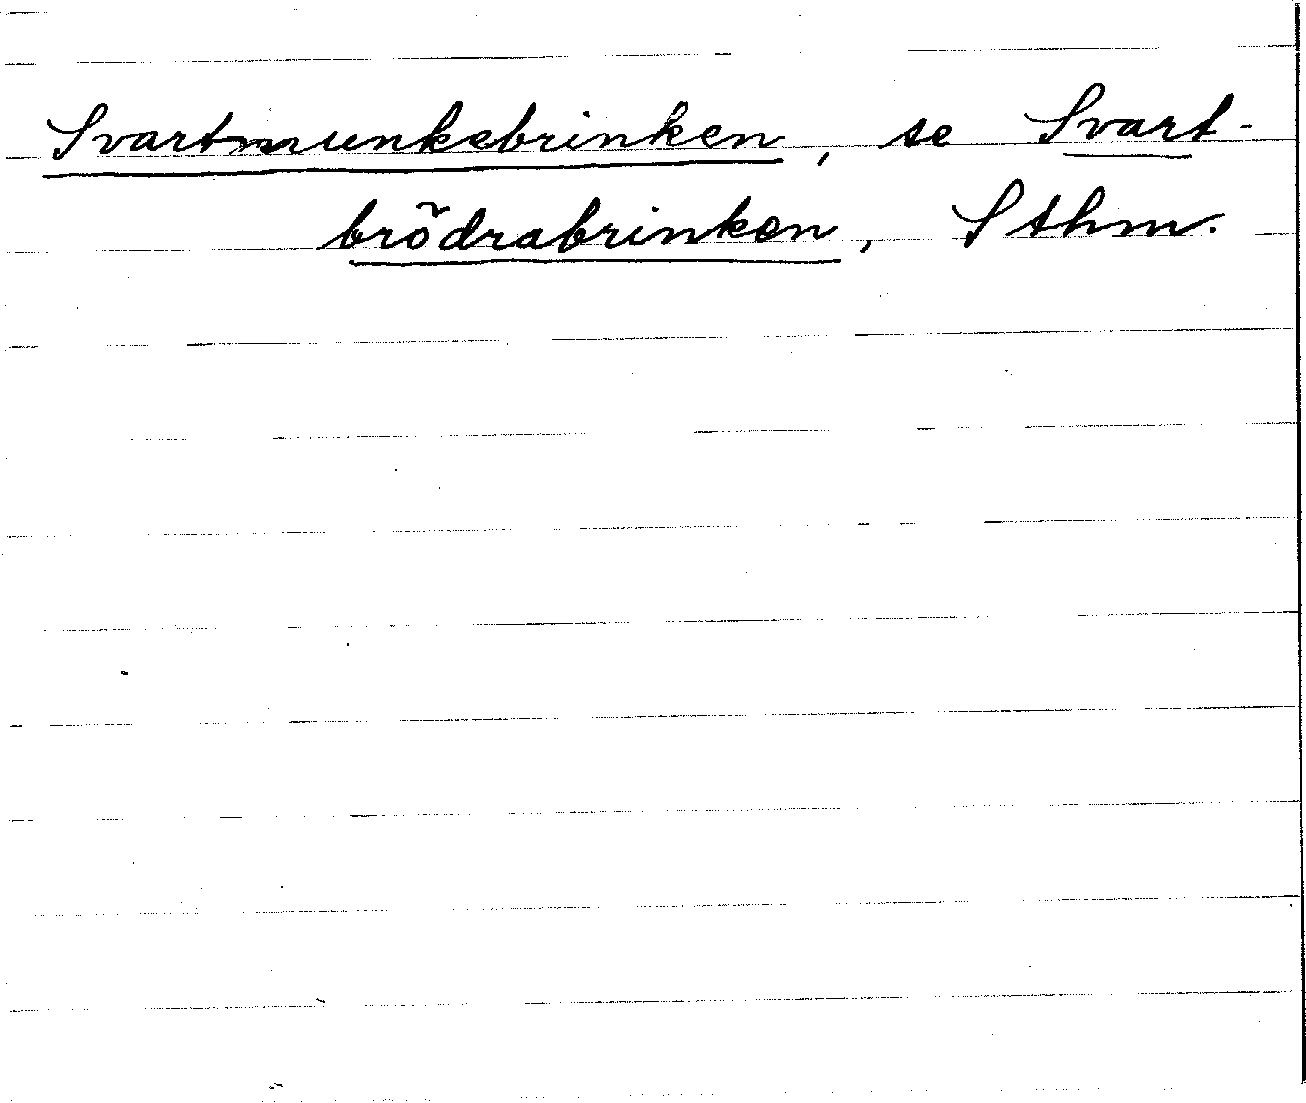 Svartmunkebrinken, se Svart-
brödrabrinken, Sthm.